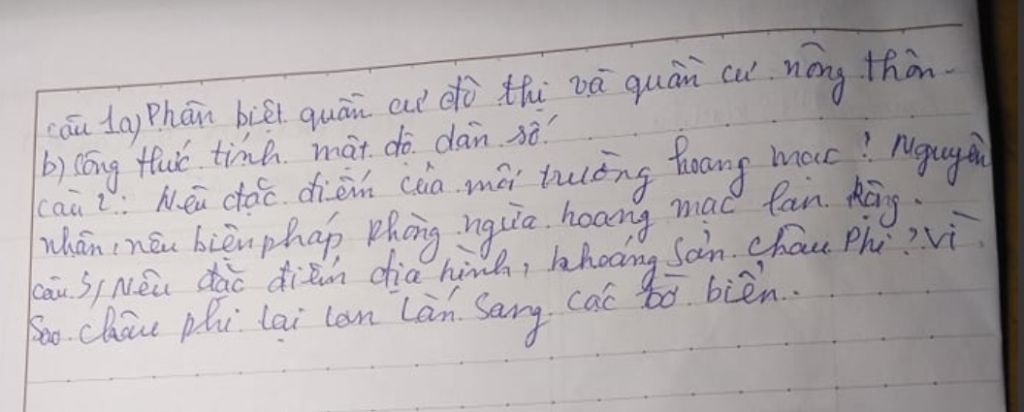 câu 1a) Phân biệt quần cư đô thị và quần cư nông thôn.
b) Công thức tính mật độ dân số.
câu 2: Nêu đặc điểm của môi trường hoang mạc? Nguyên
nhân, nêu biện pháp phòng ngừa hoang mạc lan rộng.
câu 3, Nêu đặc điểm địa hình, khoáng sản châu Phi? Vì
sao châu phi lại lan lấn sang các bờ biển.